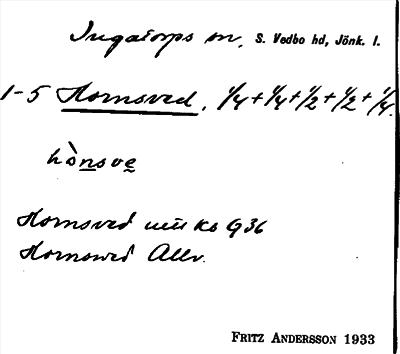 Ingatorps sn, S. Vedbo hd, Jönk. l.
1-5 Hornsved, 1/4 + 1/4 + 1/2 + 1/2 + 1/4.
hò̱nsve
Hornsved Ks G36
Hornswed Allv.
FRITZ ANDERSSON 1933